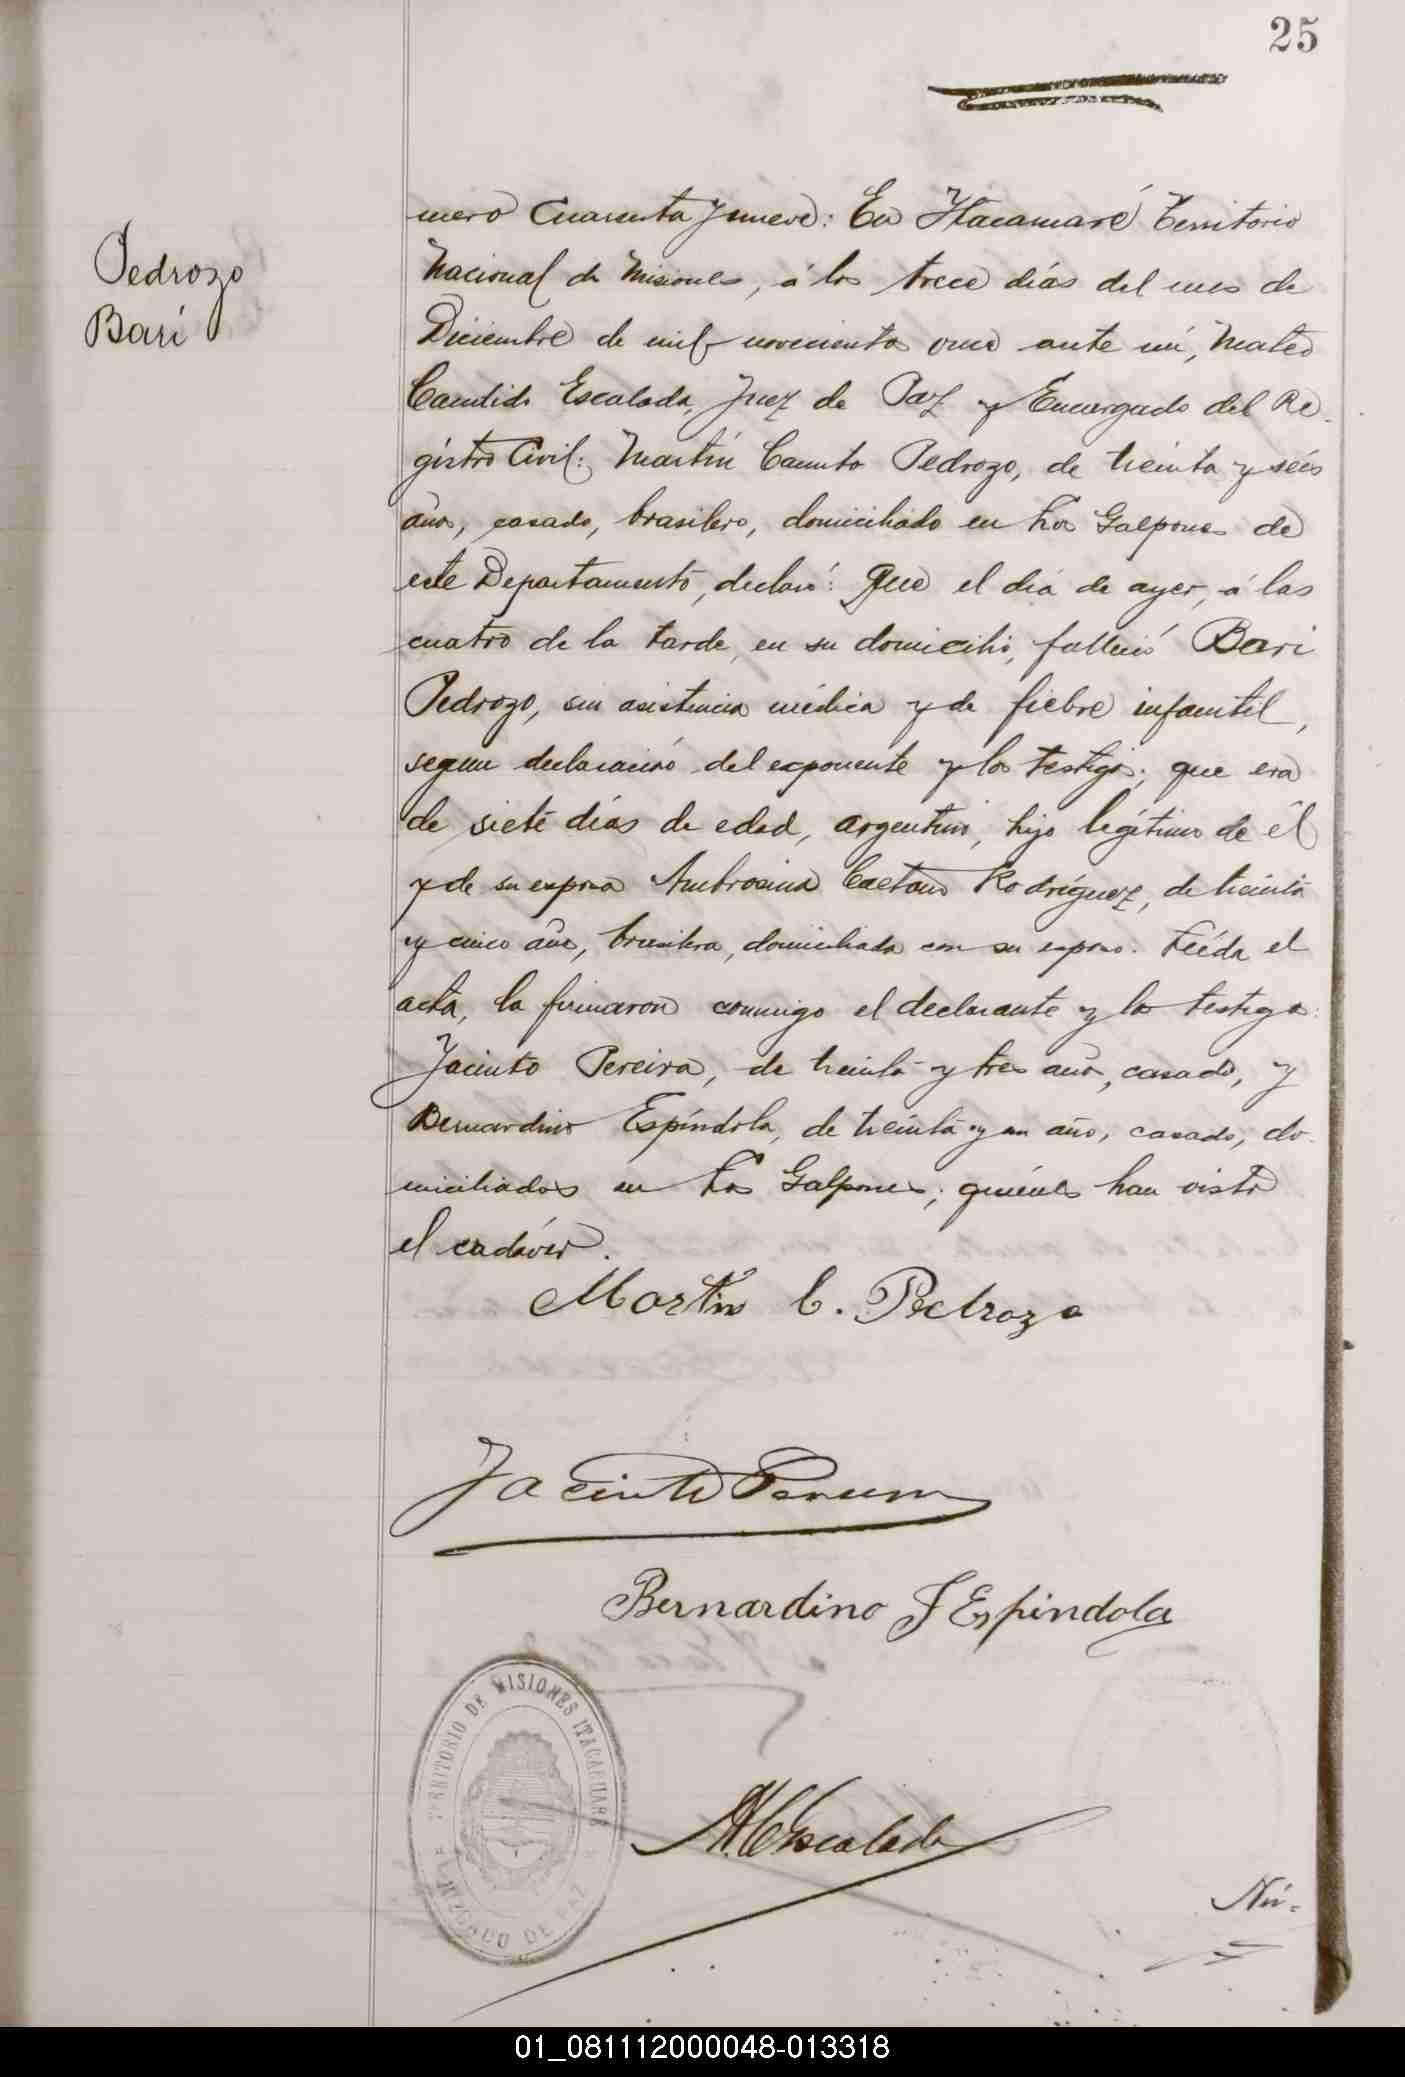 25
Pedrozo
Bari
mero Cuarenta y nueve: En Itacaruaré Territorio
Nacional de Misiones, á los trece días del mes de
Diciembre de mil novecientos once ante mí, Mateo
Candido Escalada, Juez de Paz y Encargado del Re-
gistro Civil: Martín Canuto Pedrozo, de treinta y seis
años, casado, brasilero, domiciliado en Los Galpones de
este Departamento, declaró: Que el día de ayer, á las
cuatro de la tarde, en su domicilio, falleció Bari
Pedrozo, sin asistencia médica y de fiebre infantil,
segun declaración del exponente y los testigos; que era
de siete días de edad, argentino, hijo legítimo de él
y de su esposa Ambrosina Caetano Rodríguez, de treinta
y cinco años, brasilera, domiciliada con su esposo. Leída el
acta, la firmaron conmigo el declarante y los testigos:
Jacinto Pereira, de treinta y tres años, casado, y
Bernardino Espíndola, de treinta y un año, casado, do-
miciliados en Los Galpones; quiénes han visto
el cadáver.
Martin C. Pedrozo
Jacinto Pereira
Bernardino F Espindola
TERRITORIO DE MISIONES ITACARUARE
JUZGADO DE PAZ
M C Escalada
Nú-
01_081112000048-013318